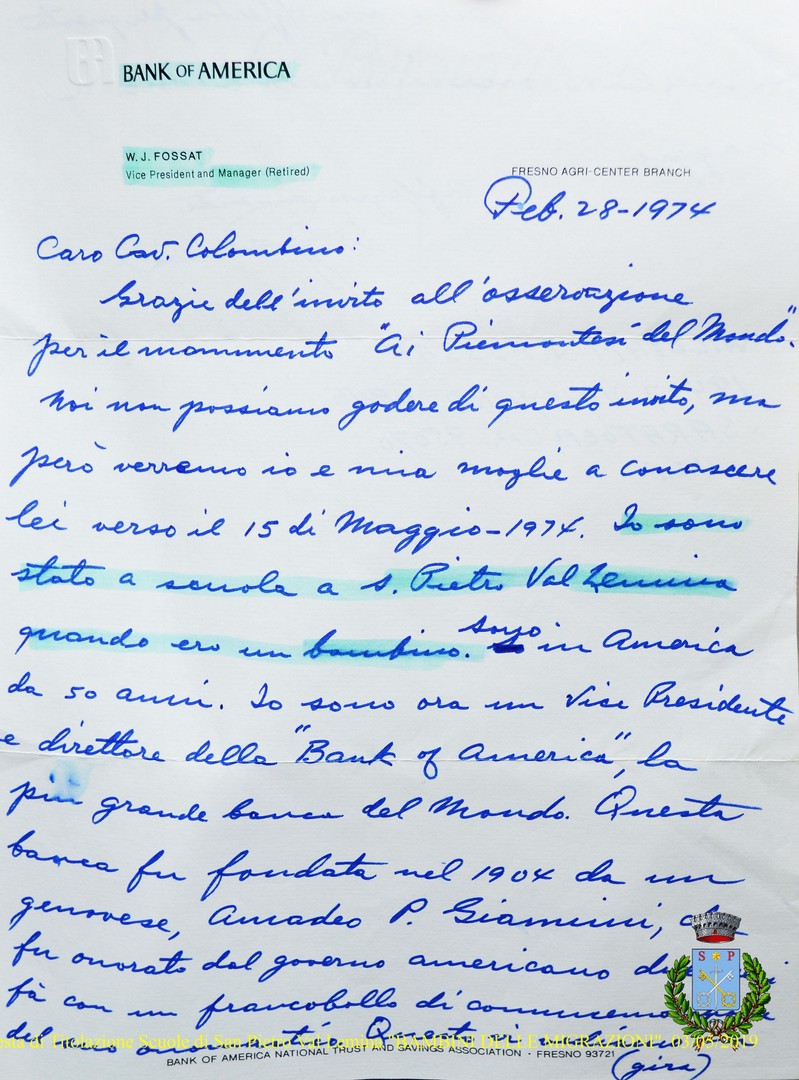 BANK OF AMERICA
W. J. FOSSAT
Vice President and Manager (Retired)
FRESNO AGRI-CENTER BRANCH
Feb. 28-1974
Caro Cav. Colombino:
Grazie dell'invito all'osservazione
per il monumento "Ai Piemontesi del Mondo".
Noi non possiamo godere di questo invito, ma
però verremo io e mia moglie a conoscere
lei verso il 15 di Maggio-1974. Io sono
stato a scuola a S. Pietro Val Lemina
quando ero un bambino. sono in America
da 50 anni. Io sono ora un Vise Presidente
e direttore della "Bank of America", la
più grande banca del Mondo. Questa
banca fu fondata nel 1904 da un
genovese, Amadeo P. Giannini,
fu onorato dal governo americano
fà con un francobollo di
del suo Questa
S P
esta di Titolazione Scuole di San Pietro Val Lemina "BAMBINI DELLE MIGRAZIONI" - 03/05/2019
BANK OF AMERICA NATIONAL TRUST AND SAVINGS ASSOCIATION • FRESNO 93721
(gira)